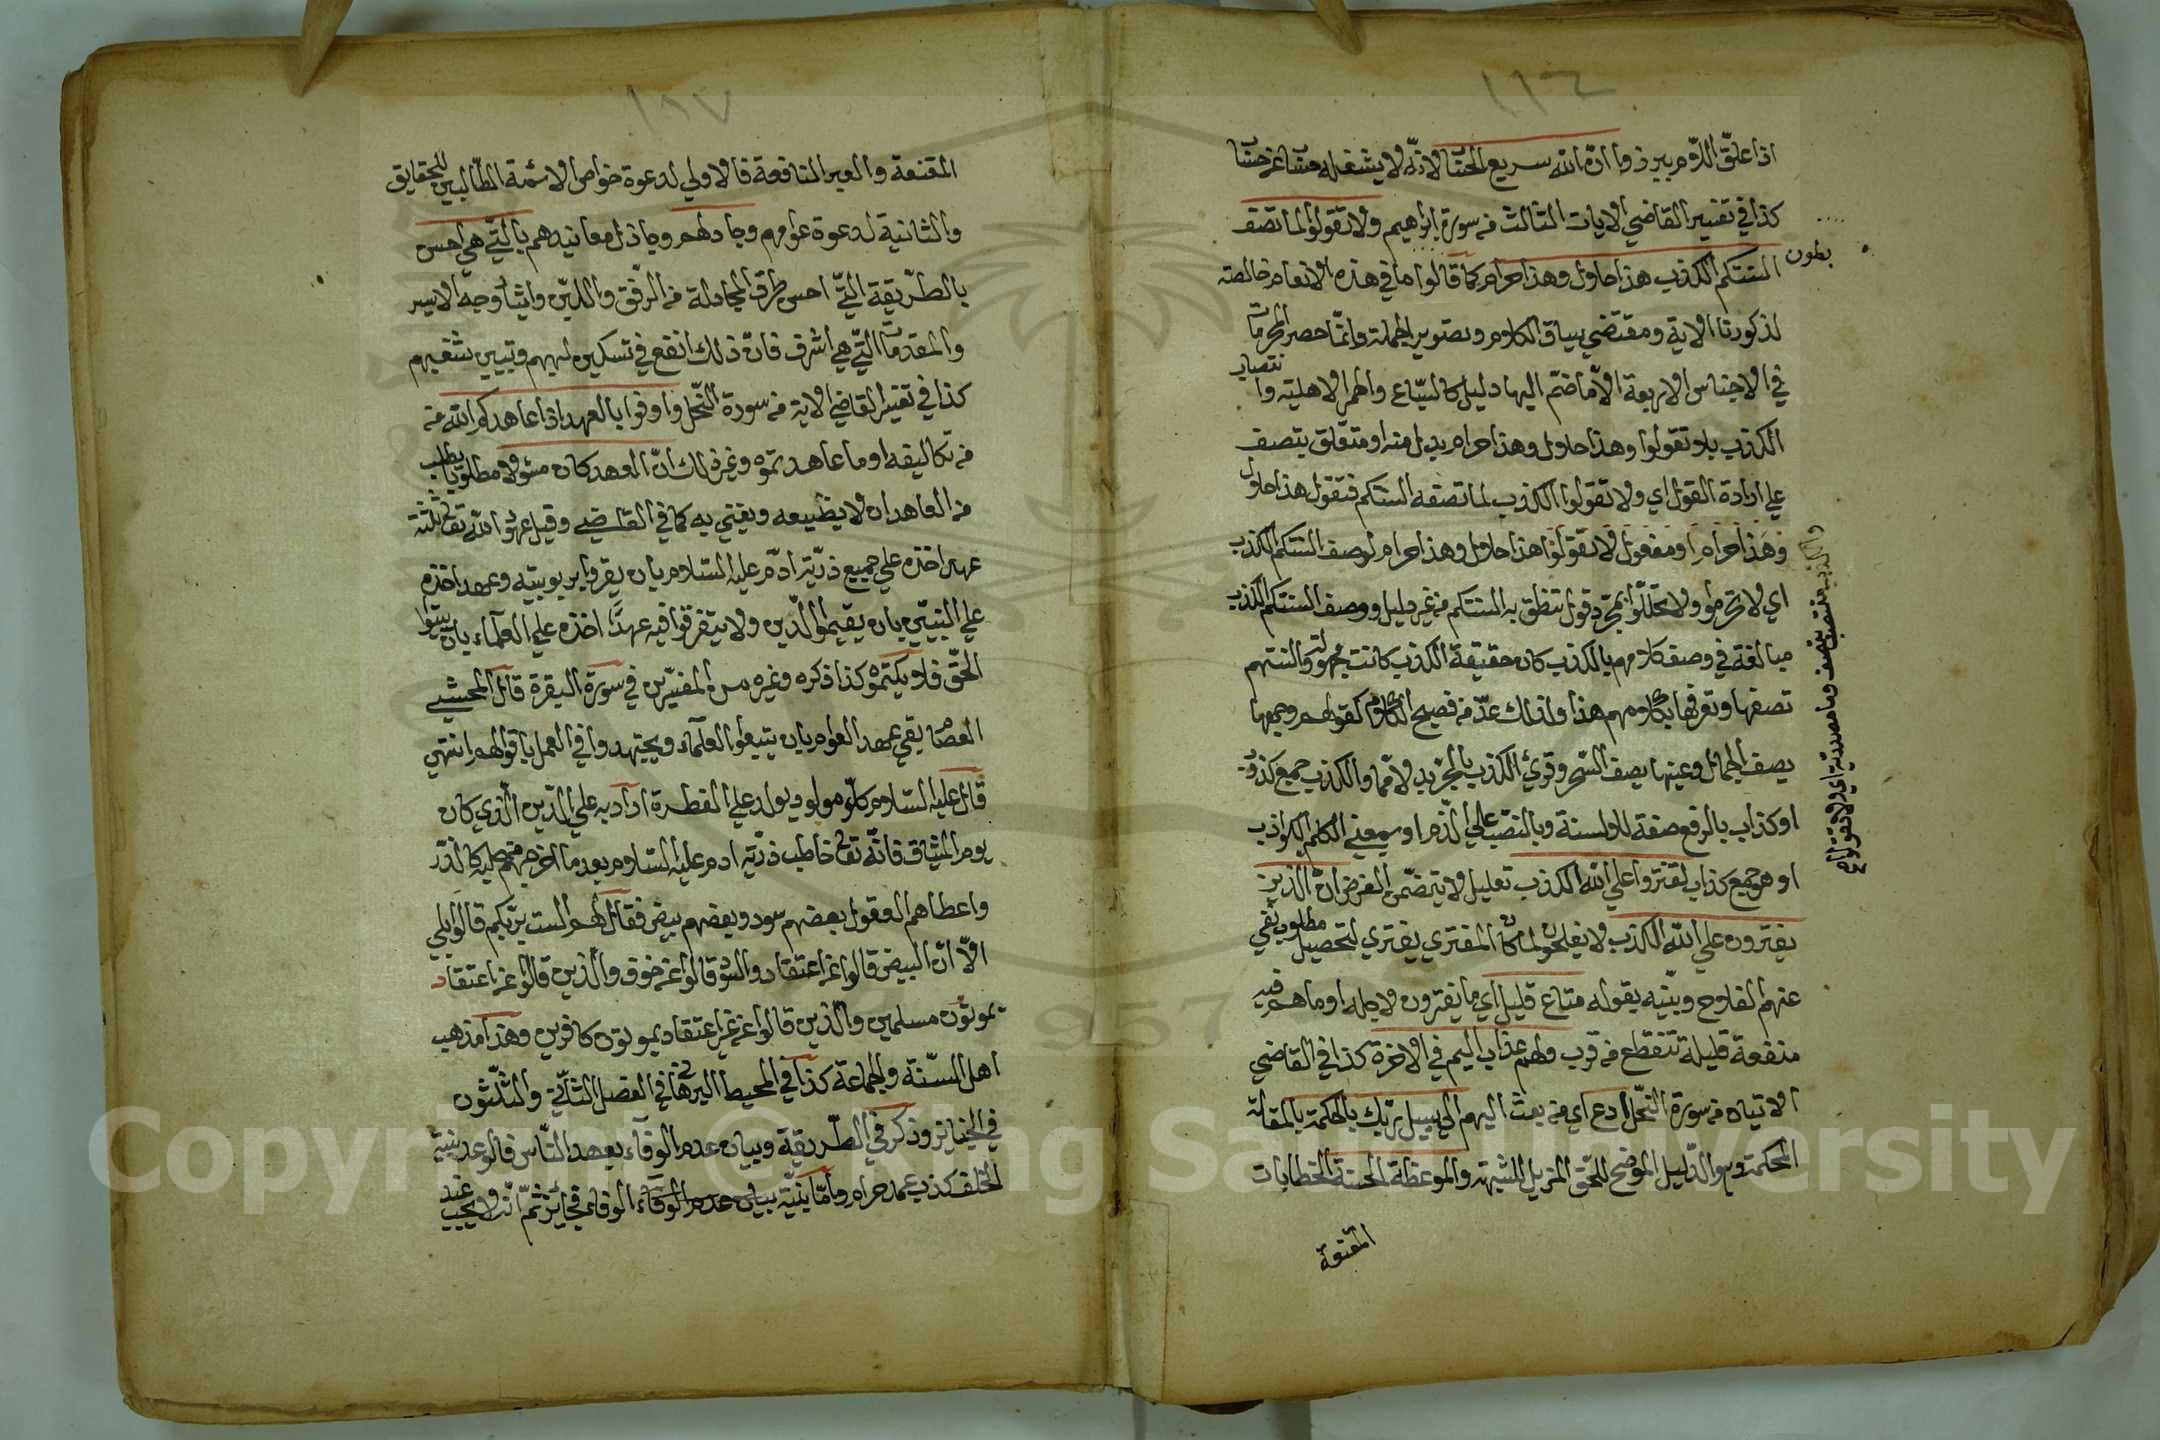 ١١٦
اذا علق اللوم ببرزوا ان الله سريع الحساب لانه لا يشغله حساب عن حساب
كذا في تفسير القاضي الايات الثالث من سورة ابراهيم ولا تقولوا لما تصف
السنتكم الكذب هذا حلال وهذا حرام كما قالوا ما في هذه الانعام خالصة
بطون
لذكورنا الاية ومقتضي سياق الكلام وتصوير الجملة وانما حصر المحرمات
في الاجناس الاربعة الا ما ضم اليها دليل كالسباع والحمر الاهلية وا نتصاب
الكذب بلا تقولوا وهذا حلال وهذا حرام بدل منه او متعلق بتصف
علي ارادة القول اي ولا تقولوا الكذب لما تصفه السنتكم فتقول هذا حلال
وهذا حرام او مفعول لا تقولوا هذا حلال وهذا حرام لوصف السنتكم الكذب
اي لا تحرموا ولا تحللوا بمجرد قول تنطق به السنتكم من غير دليل ووصف السنتكم الكذب
مبالغة في وصف كلامهم بالكذب كان حقيقة الكذب كانت مجهولة والسنتهم
تصفها وتعرفها بكلامهم هذا ولذلك عد من فصيح الكلام كقولهم وجهها
يصف الجمال وعينها يصف السحر وقرئ الكذب بالجر بدلا من ما والكذب جمع كذوب
او كذاب بالرفع صفة للالسنة وبالنصب علي الذم او بمعني الكلم الكواذب
او هو جمع كذاب لتفتروا علي الله الكذب تعليل لا يتضمن الغرض ان الذين
يفترون علي الله الكذب لا يفلحون لما كان المفتري يفتري لتحصيل مطلوب نفي
عنهم الفلاح وبينه بقوله متاع قليل اي ما يفترون لاجله او ما هم فيه
منفعة قليلة تنقطع من قرب ولهم عذاب اليم في الاخرة كذا في القاضي
الايتان من سورة النحل ادع اي من بعث اليهم الي سبيل ربك بالحكمة بالمقالة
المحكمة وهو الدليل الموضح للحق المزيل للشبهة والموعظة الحسنة الخطابات
المقنعة
١٨٧
المقنعة والعبر النافعة فالاولي لدعوة خواص الائمة الطالبين للحقايق
والثانية لدعوة عوامهم وجادلهم وجادل معانيدهم بالتي هي احسن
بالطريقة التي احسن طرق المجادلة من الرفق واللين وايثار وجه الايسر
والمقدمات التي هي اشرف فان ذلك انفع في تسكين لهبهم وتبيين شغبهم
كذا في تفسير القاضي الاية من سورة النحل واوفوا بالعهد اذا عاهدكم الله من
من تكاليفه او ما عاهدتموه وغير ذلك ان العهد كان مسؤلا مطلوبا يطلب
من العاهد ان لا يضيعه ويفي به كما في القاضي وقيل عهود الله تعالي ثلثة
عهد اخذه علي جميع ذرية ادم عليه السلام بان يقروا بربوبيته وعهد اخذه
علي النبيين بان يقيموا الدين ولا يتفرقوا فيه عهدا اخذه علي العلماء بان يبينوا
الحق فلا يكتموه كذا ذكره وغيره من المفسرين في سورة البقرة قال المحشي
العصام بقي عهد العوام بان يتبعوا العلماء ويجتهدوا في العمل باقوالهم انتهي
قال عليه السلام كل مولود يولد علي الفطرة اراد به علي الدين الذي كان
يوم الميثاق فانه تعالي خاطب ذرية ادم عليه السلام بعد ما اخرجهم من صلبه كالذر
واعطاهم العقول بعضهم سود وبعضهم بيض فقال لهم الست بربكم قالوا بلي
الا ان البيض قالوا عن اعتقاد والسود قالوا عن خوف والذين قالوا عن اعتقاد
يموتون مسلمين والذين قالوا عن غير اعتقاد يموتون كافرين وهذا مذهب
اهل السنة والجماعة كذا في المحيط البرهاني في الفصل الثاني والثلثون
في الجنايز وذكر في الطريقة وبيان عدم الوفاء بعهد الناس فالوعد بنية
الخلف كذب عمد حرام واما بنية بيان عدم الوفاء الوفاء فجائز ثم انه لا يجب عند
Copyright © King Saud University
1957